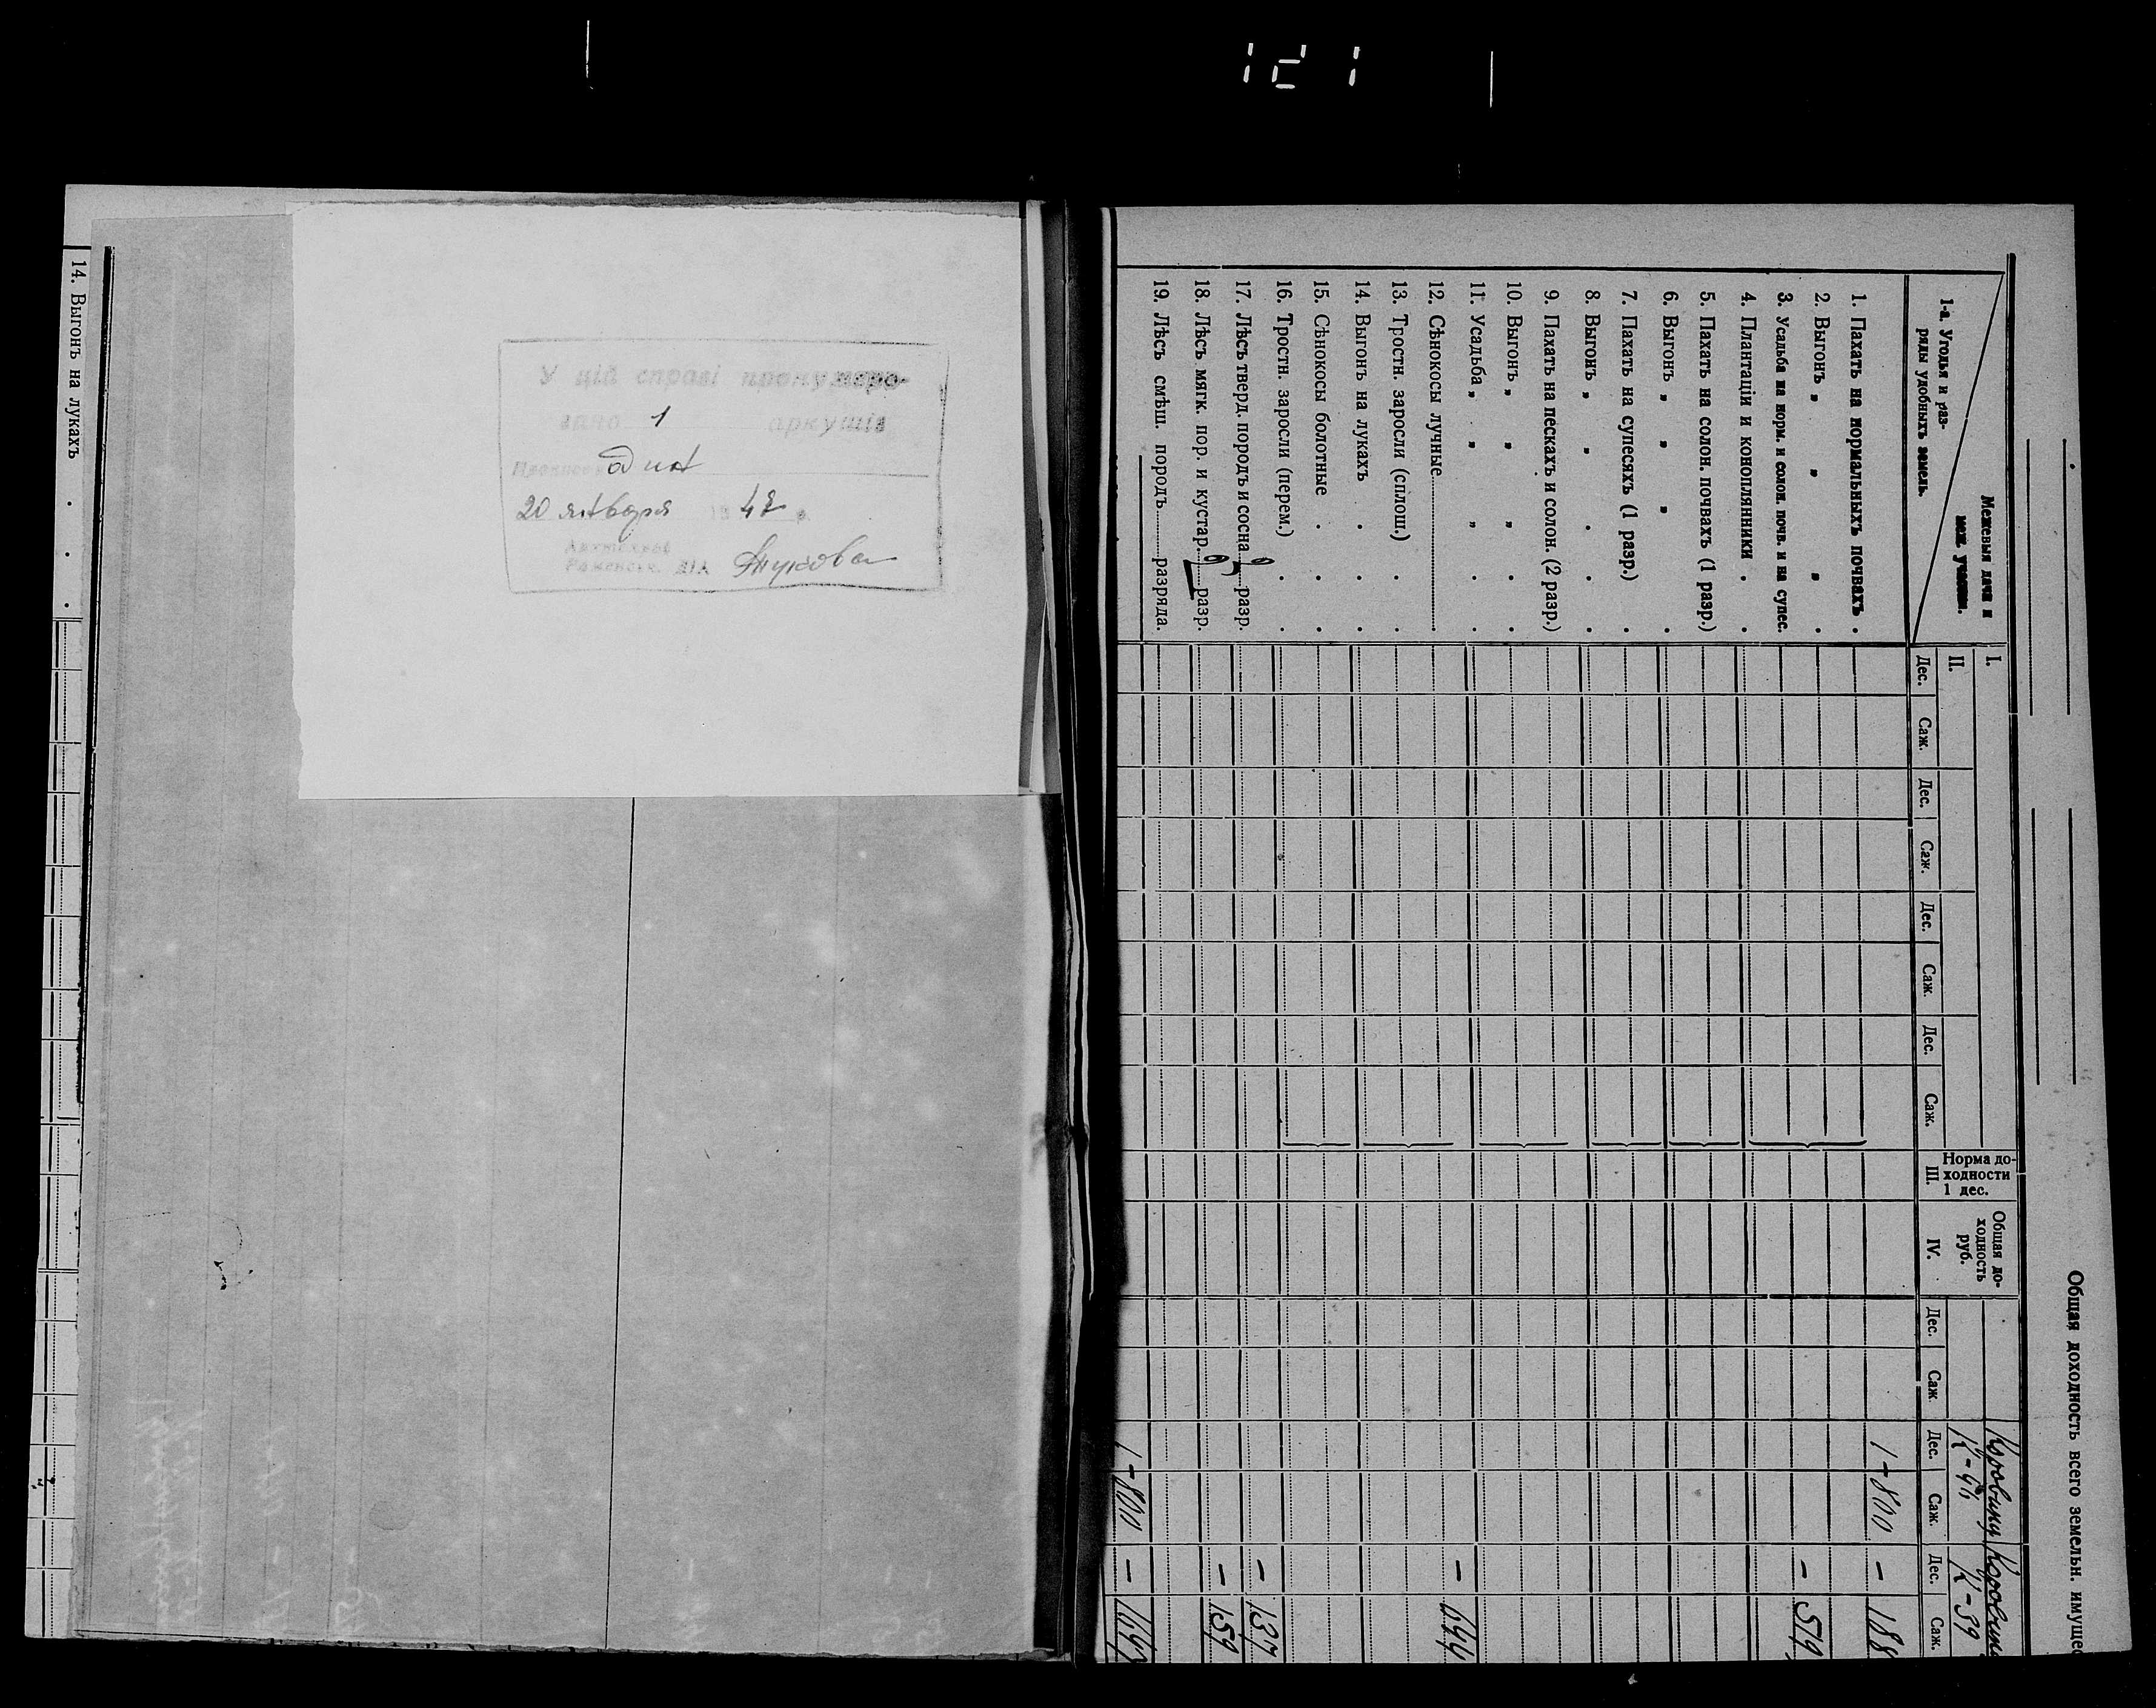 121
14. Выгонъ на лукахъ
У цій справі пронумеро-
вано 1 аркушів
один
20 января 194
Архівіст
ДІА
Общая доходность всего земельн. имущес
Межевыя дача и
меж. участки.
1-а. Угодья и раз-
ряды удобныхъ земель.
I.
II.
Норма до-
ходности
1 дес.
III.
Общая до-
ходность
руб.
IV.
К-39
Дес. Саж. Дес. Саж. Дес. Саж. Дес. Саж. Дес. Саж. Дес. Саж. Дес. Саж.
1. Пахать на нормальныхъ почвахъ . 1-800 - 188
2. Выгонъ " " " .
3. Усадьба на норм. и солон. почв. и на супес. - 519
4. Плантаціи и коноплянники .
5. Пахать на солон. почвахъ (1 разр.)
6. Выгонъ " " " .
7. Пахать на супесяхъ (1 разр.) .
8. Выгонъ " " . . .
9. Пахать на пескахъ и солон. (2 разр.)
10. Выгонъ " " " . .
11. Усадьба " " " . .
12. Сѣнокосы лучные - 644
13. Тростн. заросли (сплош.) . .
14. Выгонъ на лукахъ . . .
15. Сѣнокосы болотные . . .
16. Тростн. заросли (перем.) . .
17. Лѣсъ тверд. породъ и сосна 2 разр. - 137
18. Лѣсъ мягк. пор. и кустар. разр. - 159
19. Лѣсъ смѣш. породъ разряда.
1-800 - 1647